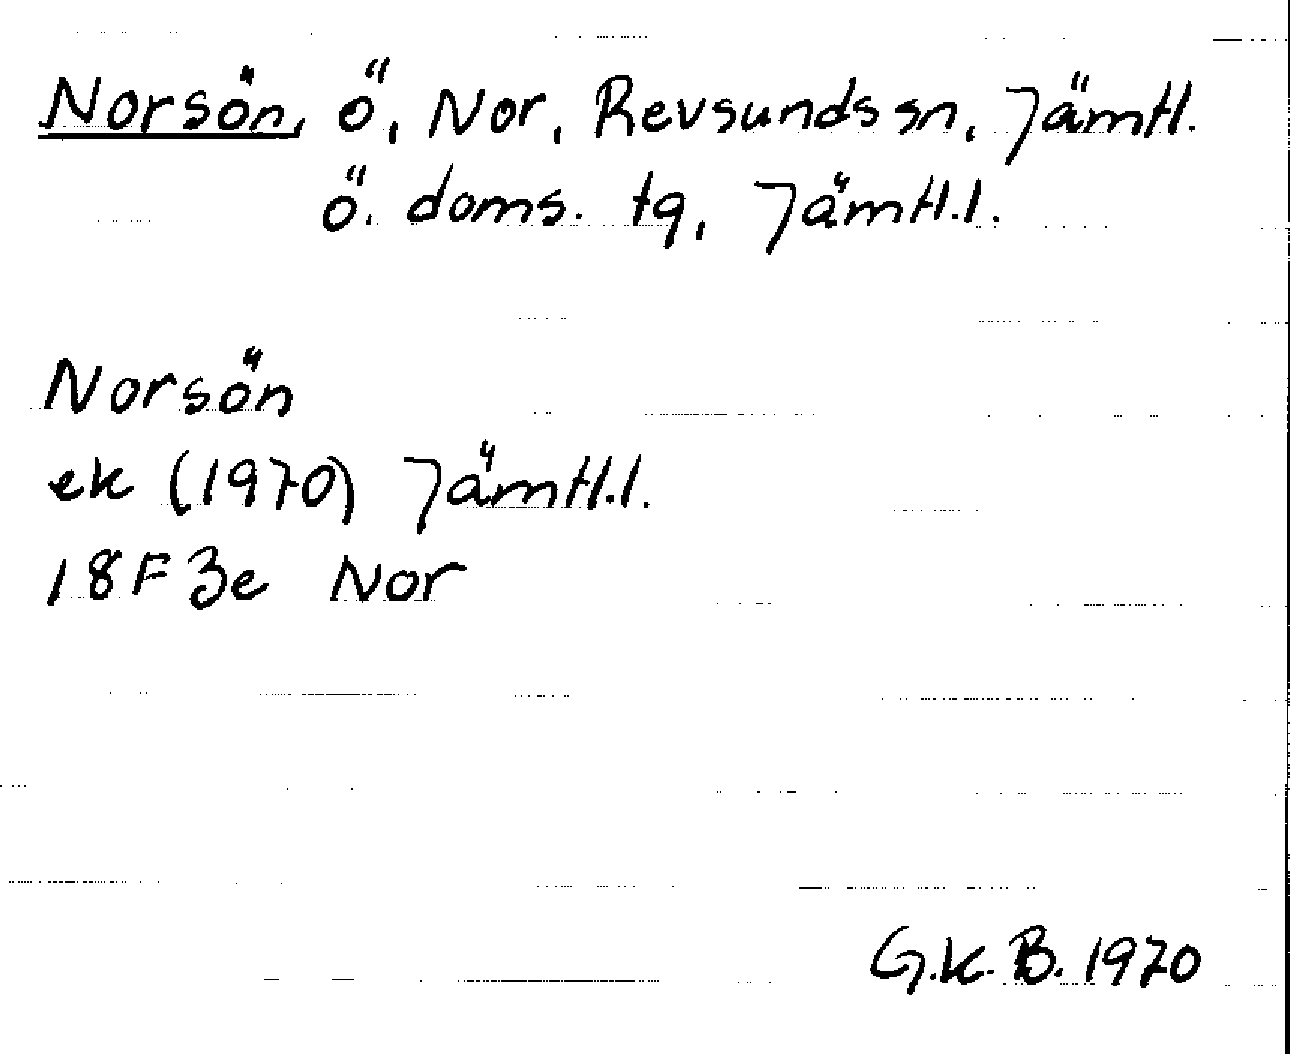 Norsön, ö, Nor, Revsunds sn, Jämtl.
ö. doms. tg, Jämtl.l.
Norsön
ek (1970) Jämtl.l.
18F3e Nor
G.K.B. 1970